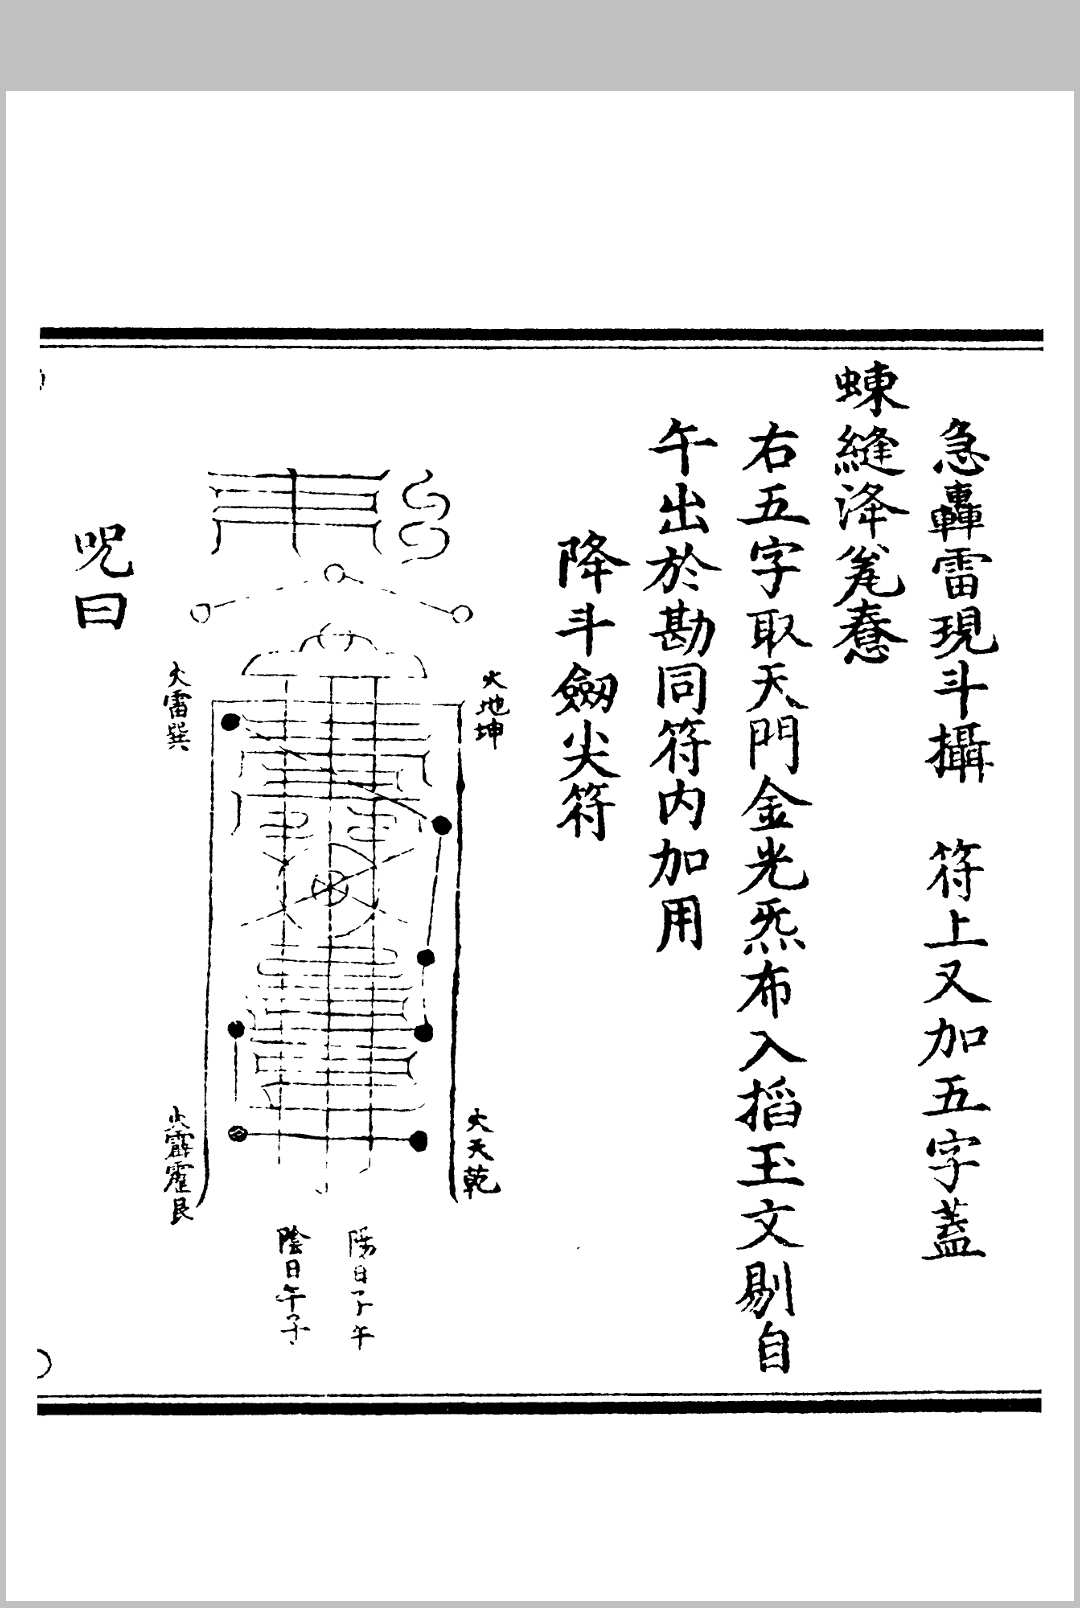 急轟雷現斗攝　符上又加五字蓋
縫
右五字取天門金光炁布入搯玉文剔自
午出於勘同符内加用
降斗劔尖符
火地坤
火天乾
火雷巽
火霹靂艮
陽日子午
陰日午子
呪曰